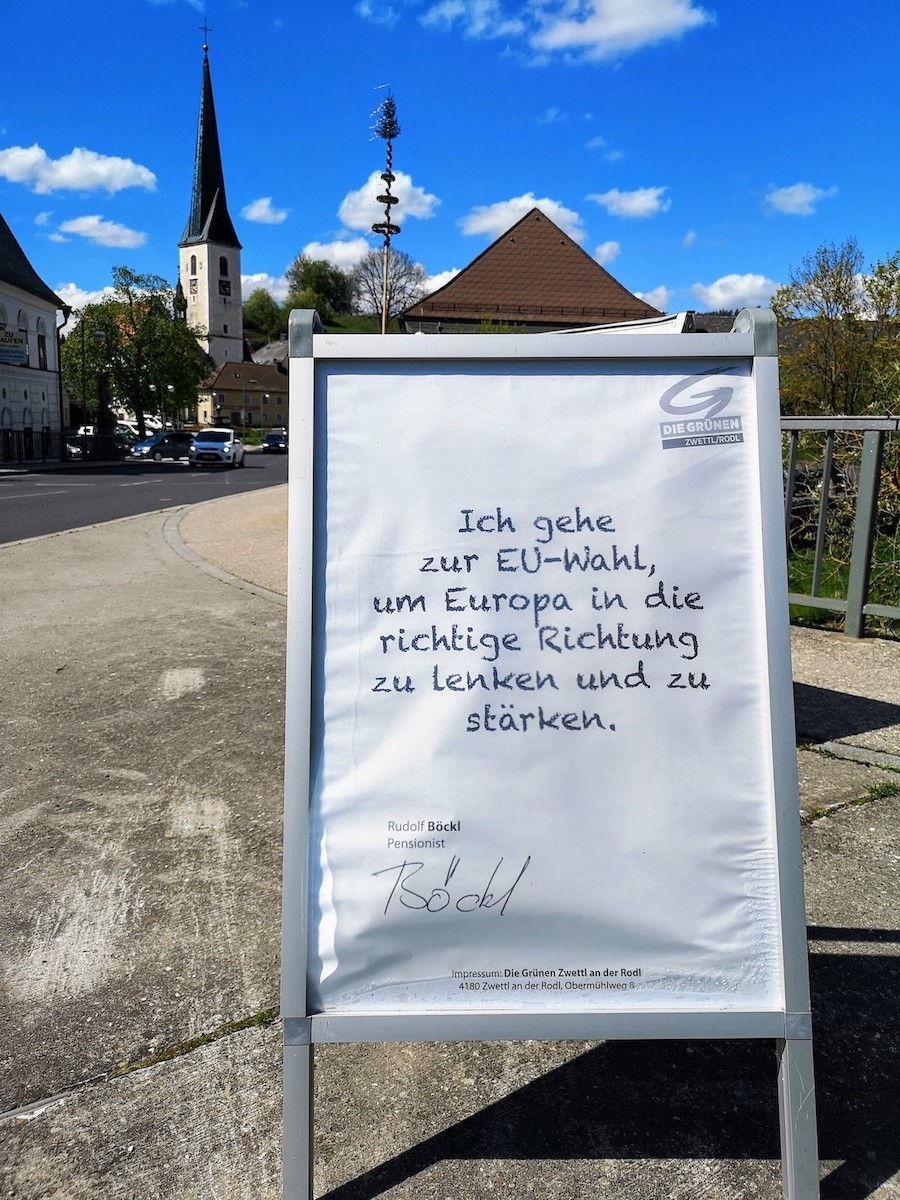 DIE GRÜNEN
ZWETTL/RODL
Ich gehe
zur EU-Wahl,
um Europa in die
richtige Richtung
zu lenken und zu
stärken.
Rudolf Böckl
Pensionist
Böckl
Impressum: Die Grünen Zwettl an der Rodl
4180 Zwettl an der Rodl, Obermühlweg 8